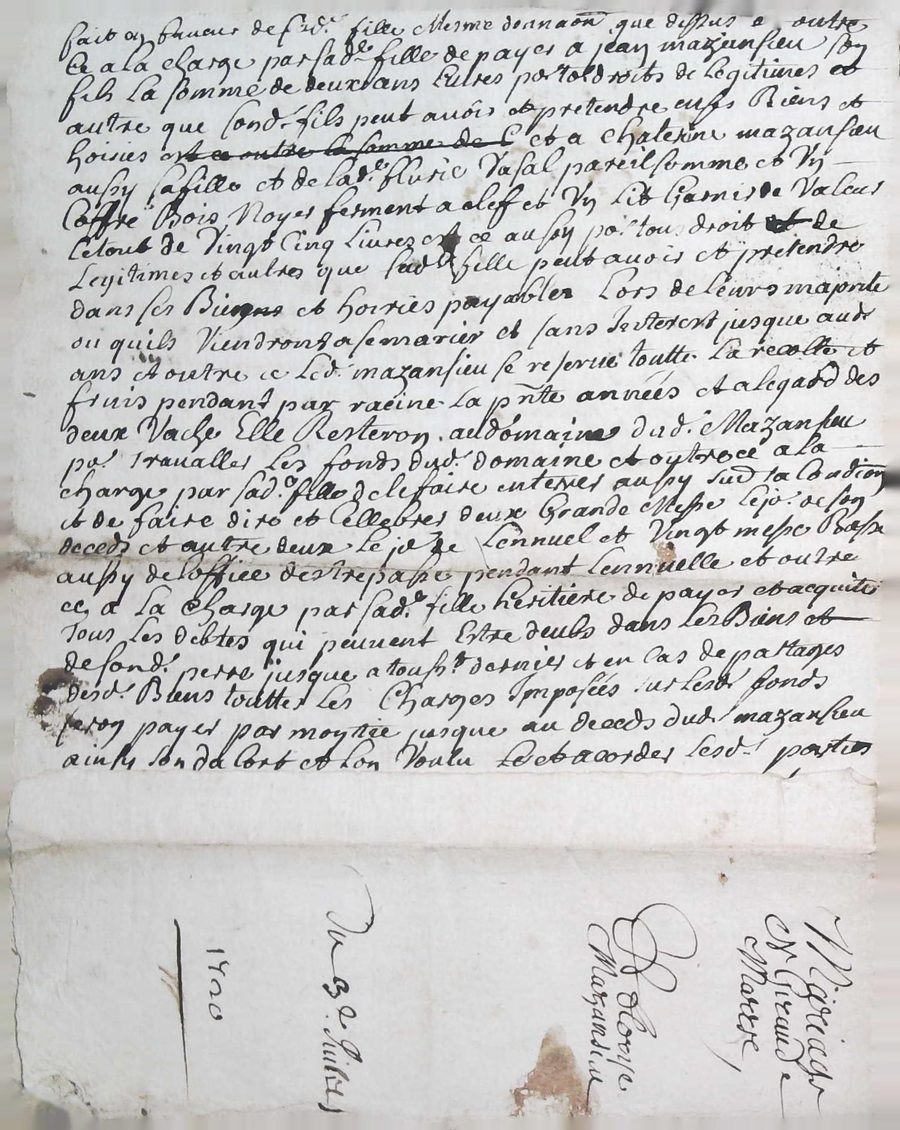 fait en faveur de sad.e fille Mesme donnaõn que dessus a outre
Ce a la charge par sad.e fille de payer a jean mazansieu son
fils La somme de deux ans Livres po.r tout droits de Legitimes et
autre que Sond.t fils peut avoir et pretendre en ses Biens et
hoiries et a outre la somme de C et a Chaterine mazansieu
aussy sa fille et de lad.e fleurie Vasal pareil somme et Vn
Coffre Bois Noyer ferment a clef et Vn Lit Garnis de Valeur
Letout de Vingt Cinq Livres et ce aussy po.r tous droit et de
Legitimes et autres que sad.e fille peut avoir et pretendre
dans ses Biens et hoiries payables Lors de leurs majorite
ou quils Viendront a se marier et sans Interest jusque aud.
ans et outre ce Led. mazansieu se reserve toutte La recolte et
fruis pendant par racine La pñte années et alegard des
deux Vache Elle Resteron au domaine dud.t Mazansieu
po.r travalles Les fonds dud.t domaine et outre ce a la
charge par sad.e fille de le faire enterres aussy sud. sa Condiion
et de faire dire et Cellebres deux Grande Messe Lejo.r de son
deceds et autre deux le jo.r de Lennuel et Vingt messe Basse
aussy de Loffice des trepasse pendant Lennuelle et outre
ce a La Charge par sad.e fille heritiere de payer et acquiter
Tous Les debtes qui peuvent Estre deubs dans Les Biens et
de sond.t perre jusque a touss.t dernier et en Cas de partages
desd.t Biens toutte Les Charges Imposées sur Lesd.t fonds
seron payer par moytie jusque au deceds dud.t mazansieu
ainsy Lon dacort et Lon Voulu et acorder Lesd.t parties
Mariage
de Giraude
Marre
&
Mazansieu
Du 3.e Juillet
1720